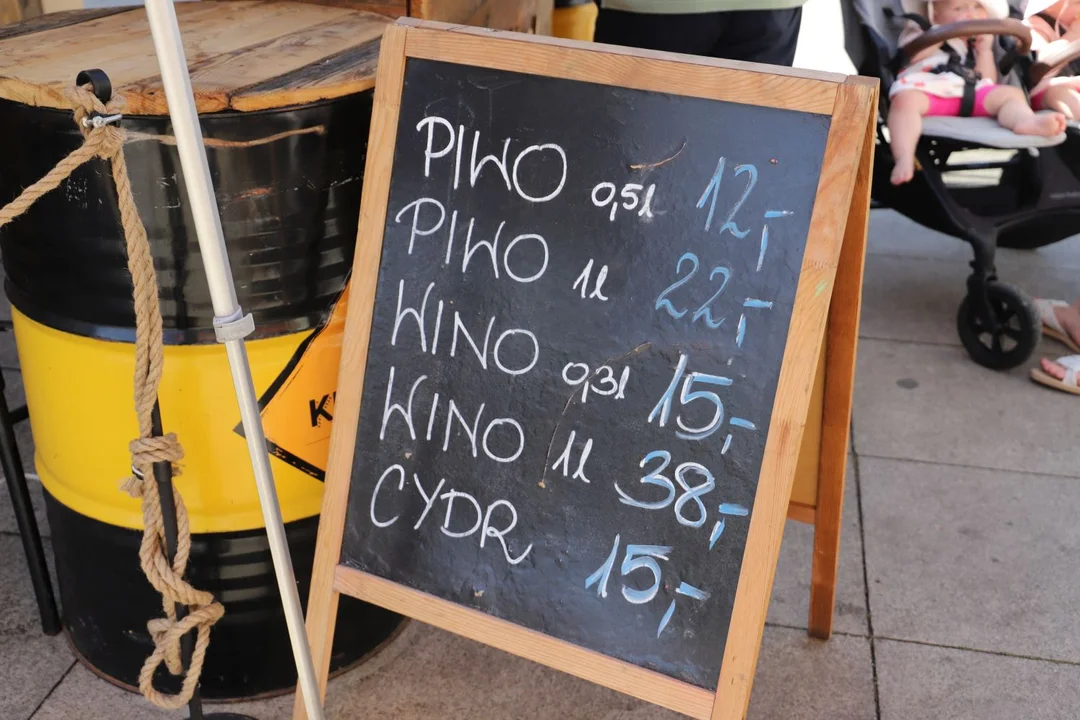 PIWO 0,5l 12,-
PIWO 1l 22,-
WINO 0,3l 15,-
WINO 1l 38,-
CYDR 15,-